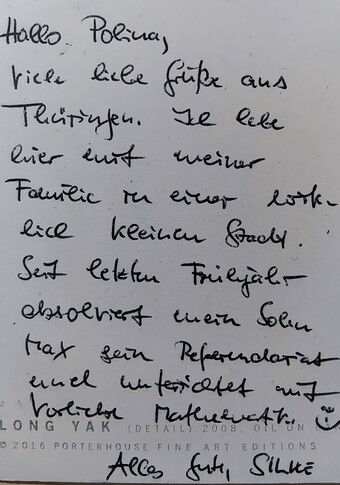 Hallo Polina,
viele liebe Grüße aus
Thüringen. Ich lebe
hier mit meiner
Familie in einer wirk-
lich kleinen Stadt.
Seit letztem Frühjahr
absolviert mein Sohn
Max sein Referendariat
und unterrichtet mit
Vorliebe Mathematik.
LONG YAK (DETAIL) 2008, OIL ON
© 2016 PORTERHOUSE FINE ART EDITIONS
Alles Gute, Silke